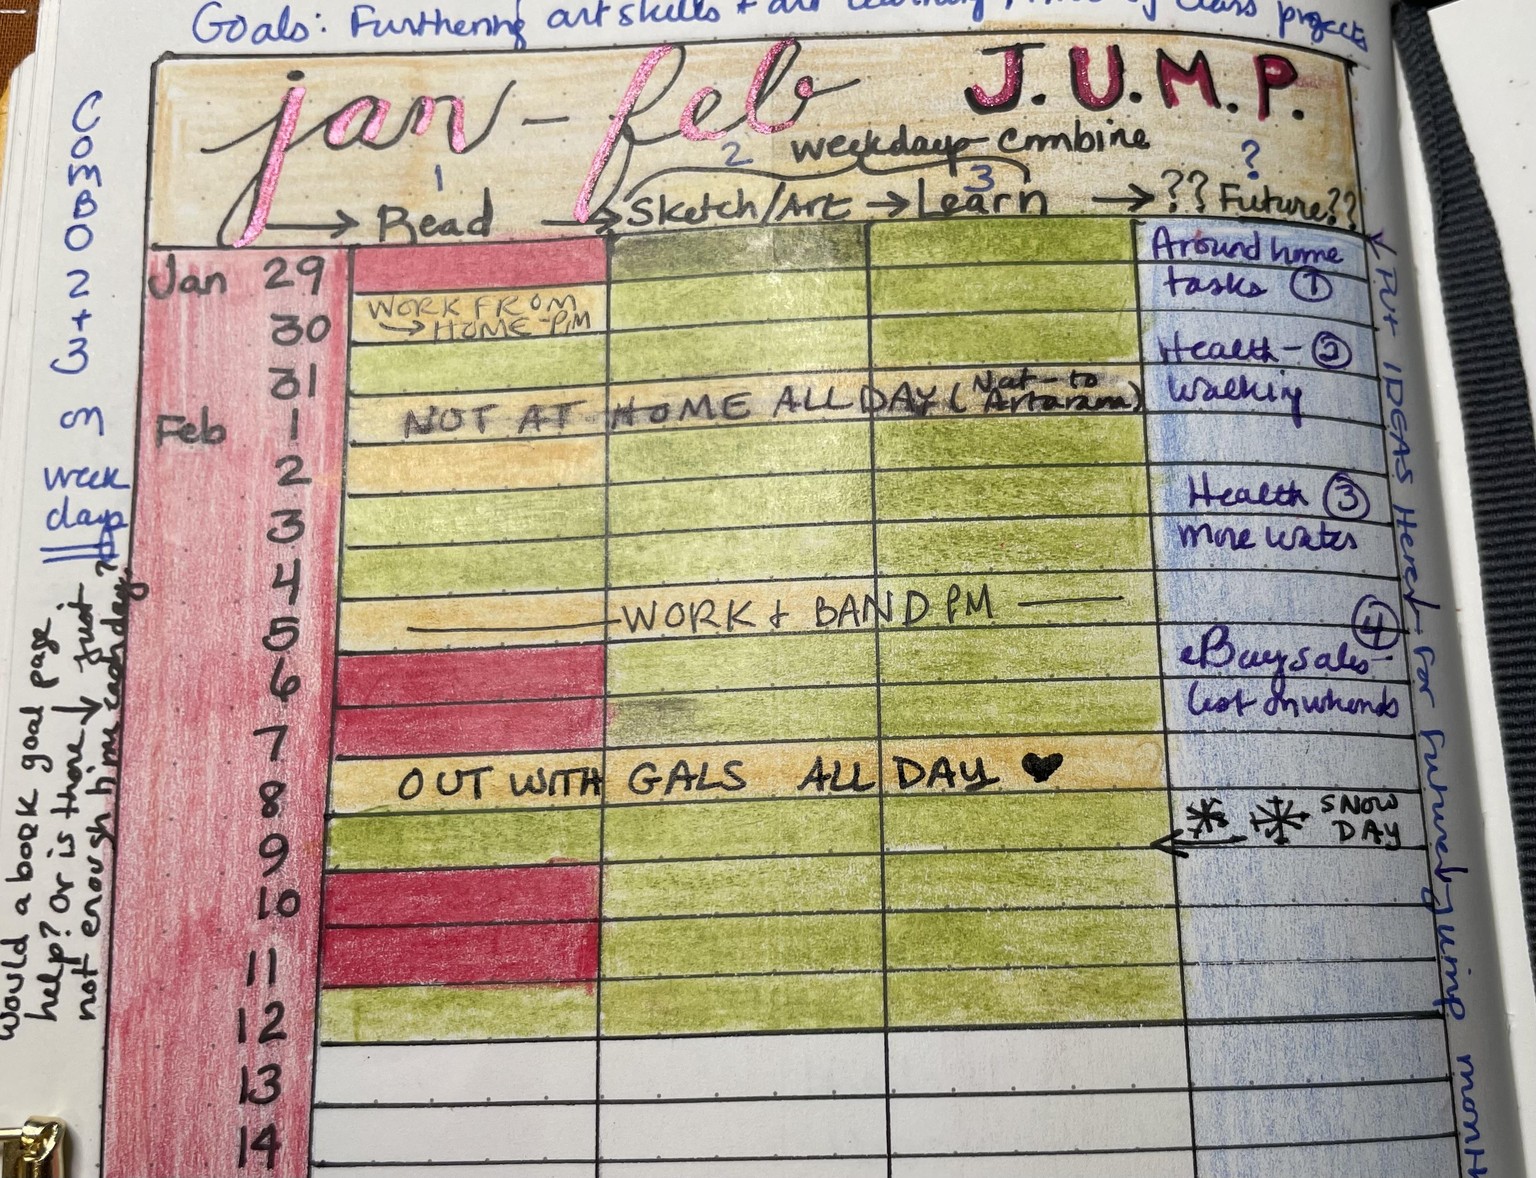 Goals: Furthering art skills + art learning, of class projects
jan - feb J.U.M.P.
weekdays combine
1 2 3 ?
→ Read → Sketch/Art → Learn → ?? Future??
Jan 29
30
31
Feb 1
2
3
4
5
6
7
8
9
10
11
12
13
14
WORK FROM
→ HOME - PM
NOT AT HOME ALL DAY (Nat - to
Artarama)
WORK + BAND PM
OUT WITH GALS ALL DAY ♥
Around home
tasks ①
Health - ②
Walking
Health ③
more water
④
eBay sales -
list on wkends
SNOW
DAY
COMBO
2
+
3
on
week
days
!!
Would a book goal page
help? Or is there ↓ just
not enough time each day?
← Put IDEAS Here for future jump month